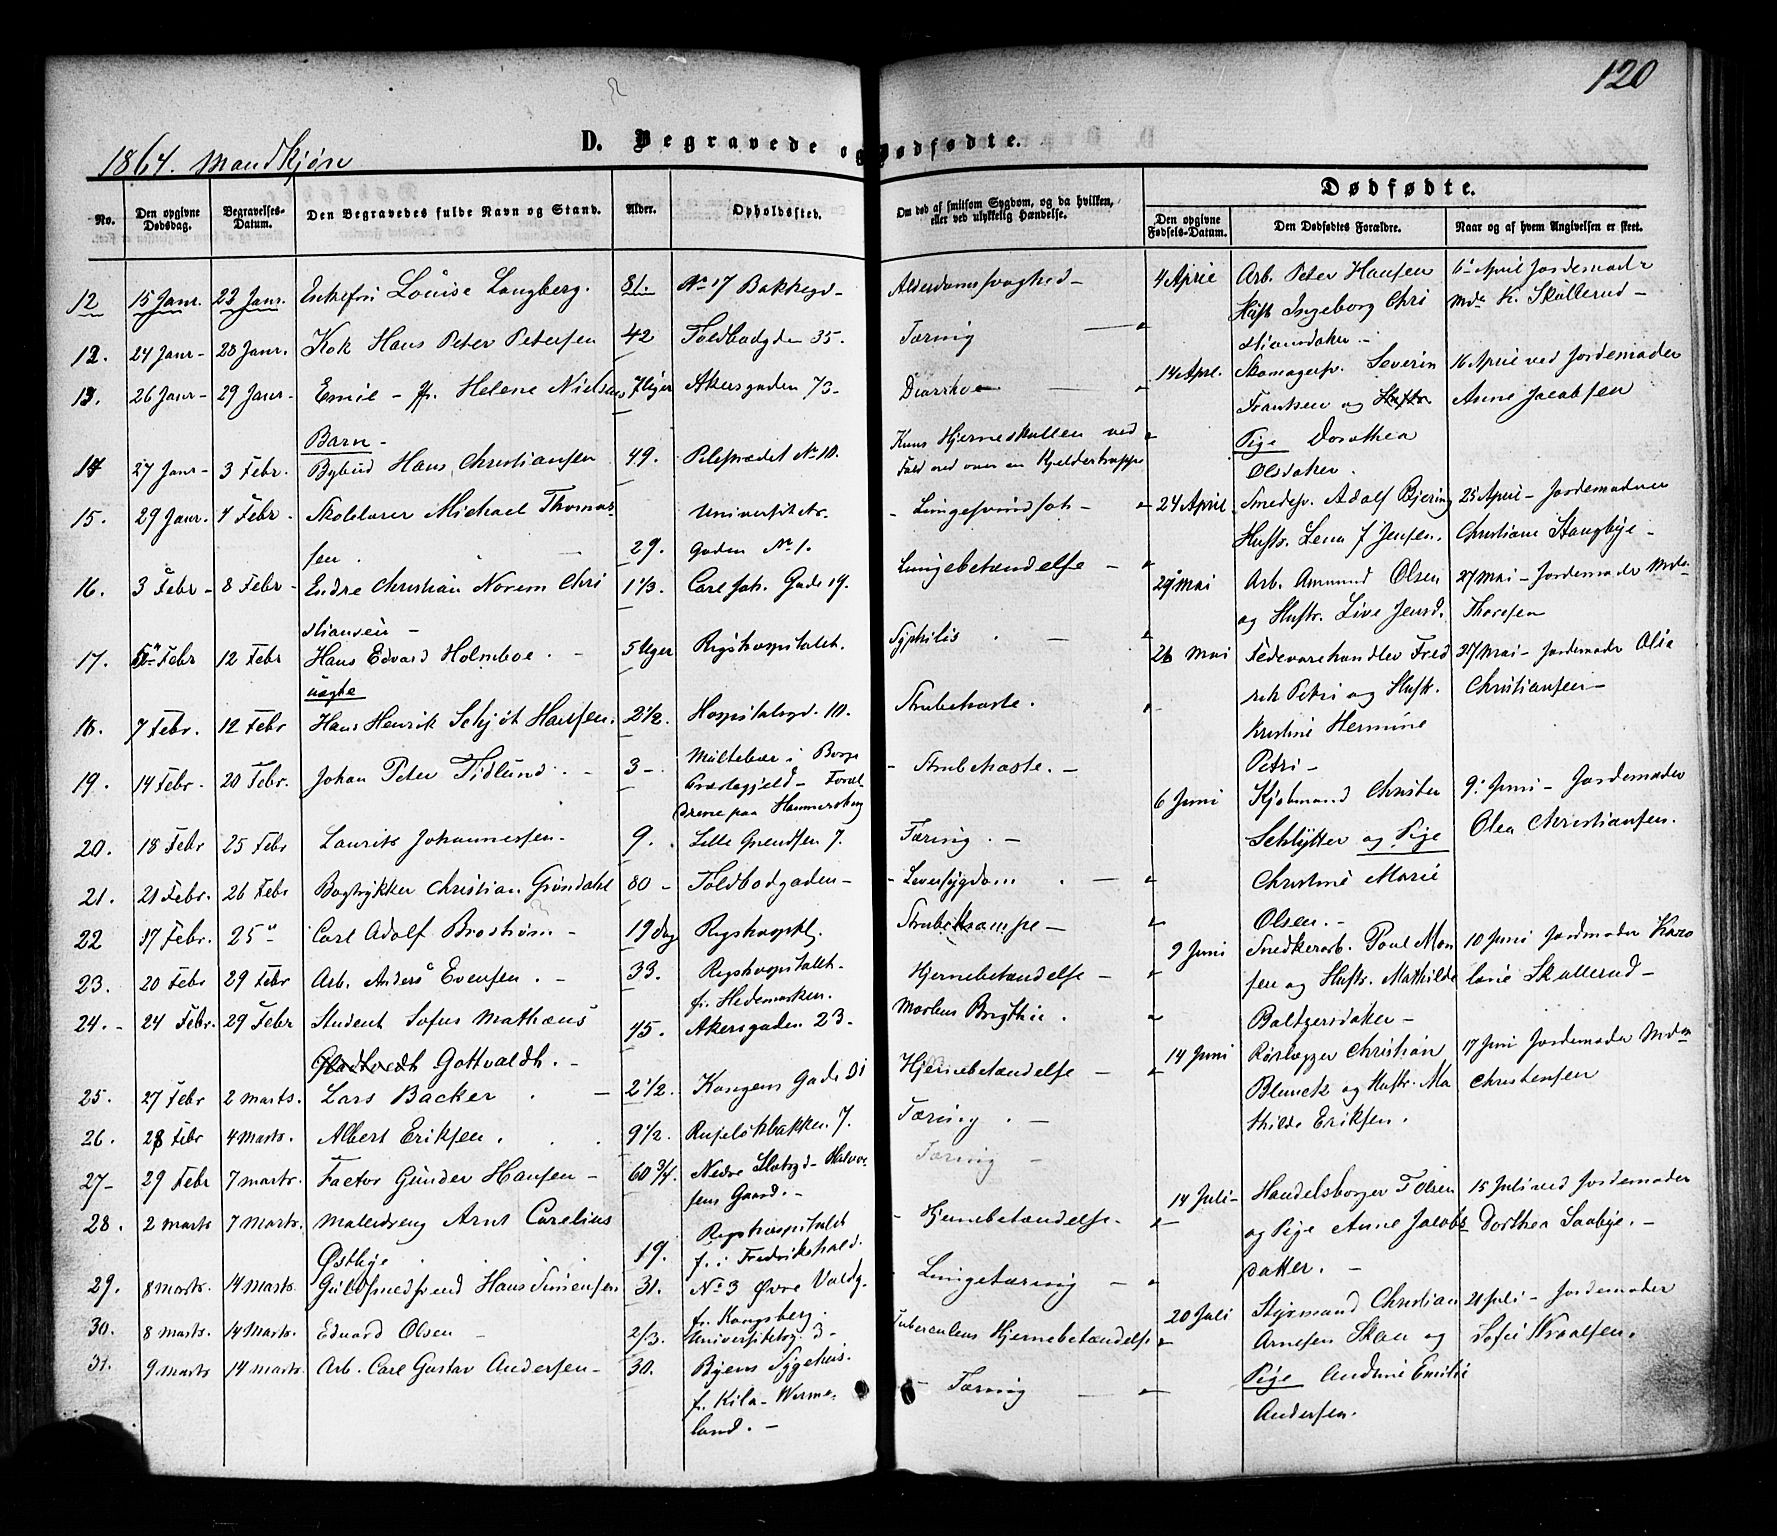 120
1864. Mandkjøn
D. Begravede og Dødfødte.
Dødfødte.
No.
Den opgivne Dødsdag.
Begravelses-Datum.
Den Begravedes fulde Navn og Stand.
Alder.
Opholdssted.
Om død af smitsom Sygdom, og da hvilken, eller ved ulykkelig Hændelse.
Den opgivne Fødsels-Datum.
Den Dødfødtes Forældre.
Naar og af hvem Angivelsen er skeet.
12 15 Janr. 23 Janr. Enkefru Louise Langberg. 81. No 17 Bakkegd- Alderdomssvaghed-
12. 24 Janr- 28 Janr. Kok Hans Peter Petersen 42 Toldbodgden 35. Tæring
13. 26 Janr- 29 Janr- Emil - fr. Helene Nielsens 7 Uger Akersgaden 73- Diarrhoe
Barn-
14 27 Janr- 3 Febr. Bybud Hans Christiansen 49. Pilestrædet No 10. Knus Hjerneskallen ved
Fald ned over en Kjeldertrappe
15. 29 Janr. 4 Febr- Skolelærer Michael Thomas- Universitets- - Lungesvindsot -
sen. 29. gaden No 1.
16. 3 Febr- 8 Febr- Endre Christian Norem Chri 1 1/3. Carl Joh. Gade 19. Lungebetændelse -
stiansen -
17. 5 Febr 12 Febr Hans Edvard Holmboe. - 5 Uger Rigshospitalet. Syphilis. -
uægte
18. 7 Febr. 12 Febr Hans Henrik Schjøt Hansen. 2 1/2. Hospitalsgd. 10. Strubehoste.
19. 14 Febr- 20 Febr. Johan Peter Tidlund. - 3- Multebær i Borge - Strubehoste. -
Præstegjeld - Foræl-
drene paa Hammersborg
20. 18 Febr 25 Febr Laurits Johannessen- 9. Lille Grendsen 7. Tæring. -
21. 21 Febr. 26 Febr Bogtrykker Christian Grøndahl 80- Toldbodgaden- - Leversygdom. -
22 17 Febr. 25" Carl Adolf Brostrøm- 19 dag Rigshosptl. Strubekrampe-
23. 20 Febr 29 Febr Arb. Anders Evensen. - 33. Rigshospitalet- Hjernebetændelse -
fr. Hedemarken.
24.- 24 Febr. 29 Febr Student Sofus Mathæus 45. Akersgaden 23- Morbus Brigthii.
Gottvaldt. -
25. 27 Febr 2 Marts. Lars Backer. - 2 1/2. Kongens Gade 31 Hjernebetændelse -
26. 28 Febr 4 Marts. Albert Eriksen. 9 1/2. Ruseløkbakken 7. Tæring. -
27- 29 Febr 7 Marts. Factor Gunder Hansen- 60 3/4. Nedre Slotsgd- Halvor- Tæring -
sens Gaard. -
28. 2 Marts 7 Marts. Malerdreng Arnt Carelius Rigshospitalet - Hjernebetændelse-
Østbye. 19. f. i Fredrikshald.
29. 8 Marts. 14 Marts. Guldsmedsvend Hans Simensen 31. No 3 Øvre Voldg. - Lungetæring -
fr. Kongsberg.
30. 8 Marts. 14 Marts. Eduard Olsen - 2/3. Universitetsg. 3- Tuberculens Hjernebetændelse
31. 9 Marts 14 Marts. Arb. Carl Gustav Andersen- 30. Byens Sygehus. - Tæring -
f. Kila- Werme-
land. -
4 April Arb. Peter Hansen 6te April Jordemoder
Hust. Ingeborg Chri Mde K. Skullerud-
stiansdater -
14 Apl. Skomagersv. Severin 16 April ved Jordemoder
Frantsen og Hustr Anne Jacobsen
Pige Dorothea
Olsdater.
24 April Smedsv. Adolf Bjering 25 April- Jordemoder
Hustr. Lena J Jensen. Christiane Stangbye-
29 Mai Arb. Amund Olsen 27 Mai- Jordemoder Mde-
og Hustr. Live Jensd. Thoresen
26 Mai Fedevarehandler Fred 27 Mai- Jordemoder Olea
rik Petri og Hustr. Christiansen-
Kristine Hermine
Petri-
6 Juni Kjøbmand Christen 9: Juni- Jordemoder
Schlytter og Pige Olea Christiansen.
Christine Marie
Olsen.-
9 Juni Snedkerarb. Poul Mon 10 Juni Jordmoder Karo
sen og Hustr. Mathilde line Skullerud-
Baltzersdater-
14 Juni Rørlægger Christian 17 Juni Jordemoder Mdm
Blunck og Hustr. Ma Christensen
thilde Eriksen.
14 Juli- Handelsborger T Olsen 15 Juli ved Jordemoder
og Pige Anne Jacobs Dorthea Saabye.-
datter. -
20 Juli Styrmand Christian 21 Juli- Jordemoder
Arnesen Skau og Sofie Kraalsen.
Pige Andrine Emilie
Andersen.